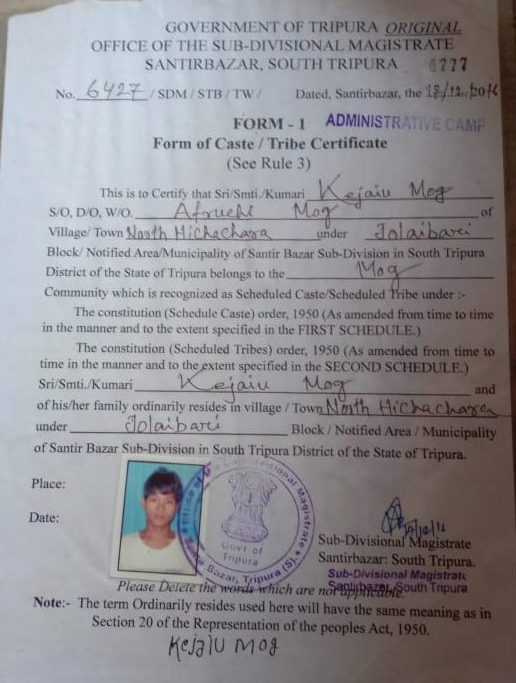 GOVERNMENT OF TRIPURA ORIGINAL
OFFICE OF THE SUB-DIVISIONAL MAGISTRATE
SANTIRBAZAR, SOUTH TRIPURA 0727
No. 6427 / SDM / STB / TW / Dated, Santirbazar, the 18/12/2016
FORM - 1 ADMINISTRATIVE CAMP
Form of Caste / Tribe Certificate
(See Rule 3)
This is to Certify that Sri/Smti./Kumari Kejaiu Mog
S/O, D/O, W/O. Afruchi Mog of
Village/ Town North Hichachara under Jolaibari
Block/ Notified Area/Municipality of Santir Bazar Sub-Division in South Tripura
District of the State of Tripura belongs to the Mog
Community which is recognized as Scheduled Caste/Scheduled Tribe under :-
The constitution (Schedule Caste) order, 1950 (As amended from time to time
in the manner and to the extent specified in the FIRST SCHEDULE.)
The constitution (Scheduled Tribes) order, 1950 (As amended from time to
time in the manner and to the extent specified in the SECOND SCHEDULE.)
Sri/Smti./Kumari Kejaiu Mog and
of his/her family ordinarily resides in village / Town North Hichachara
under Jolaibari Block / Notified Area / Municipality
of Santir Bazar Sub-Division in South Tripura District of the State of Tripura.
Place:
Date:
Office of the Sub-Divisional Magistrate
Govt of
Tripura
Santir Bazar, Tripura (S)
Sub-Divisional Magistrate
Santirbazar: South Tripura.
Sub-Divisional Magistrate
Santirbazar, South Tripura
Please Delete the words which are not applicable.
Note:- The term Ordinarily resides used here will have the same meaning as in
Section 20 of the Representation of the peoples Act, 1950.
Kejaiu Mog